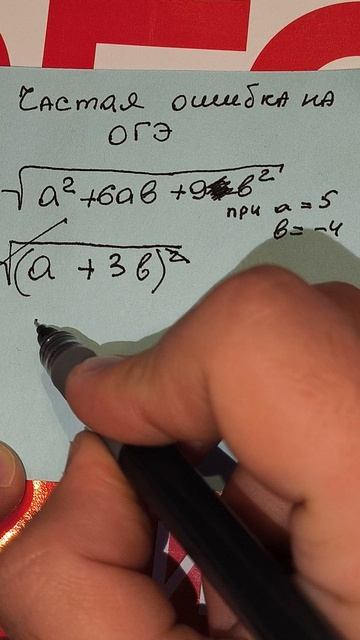 Частая ошибка на
ОГЭ
√a² + 6ab + 9b²
при a = 5
b = -4
√(a + 3b)²